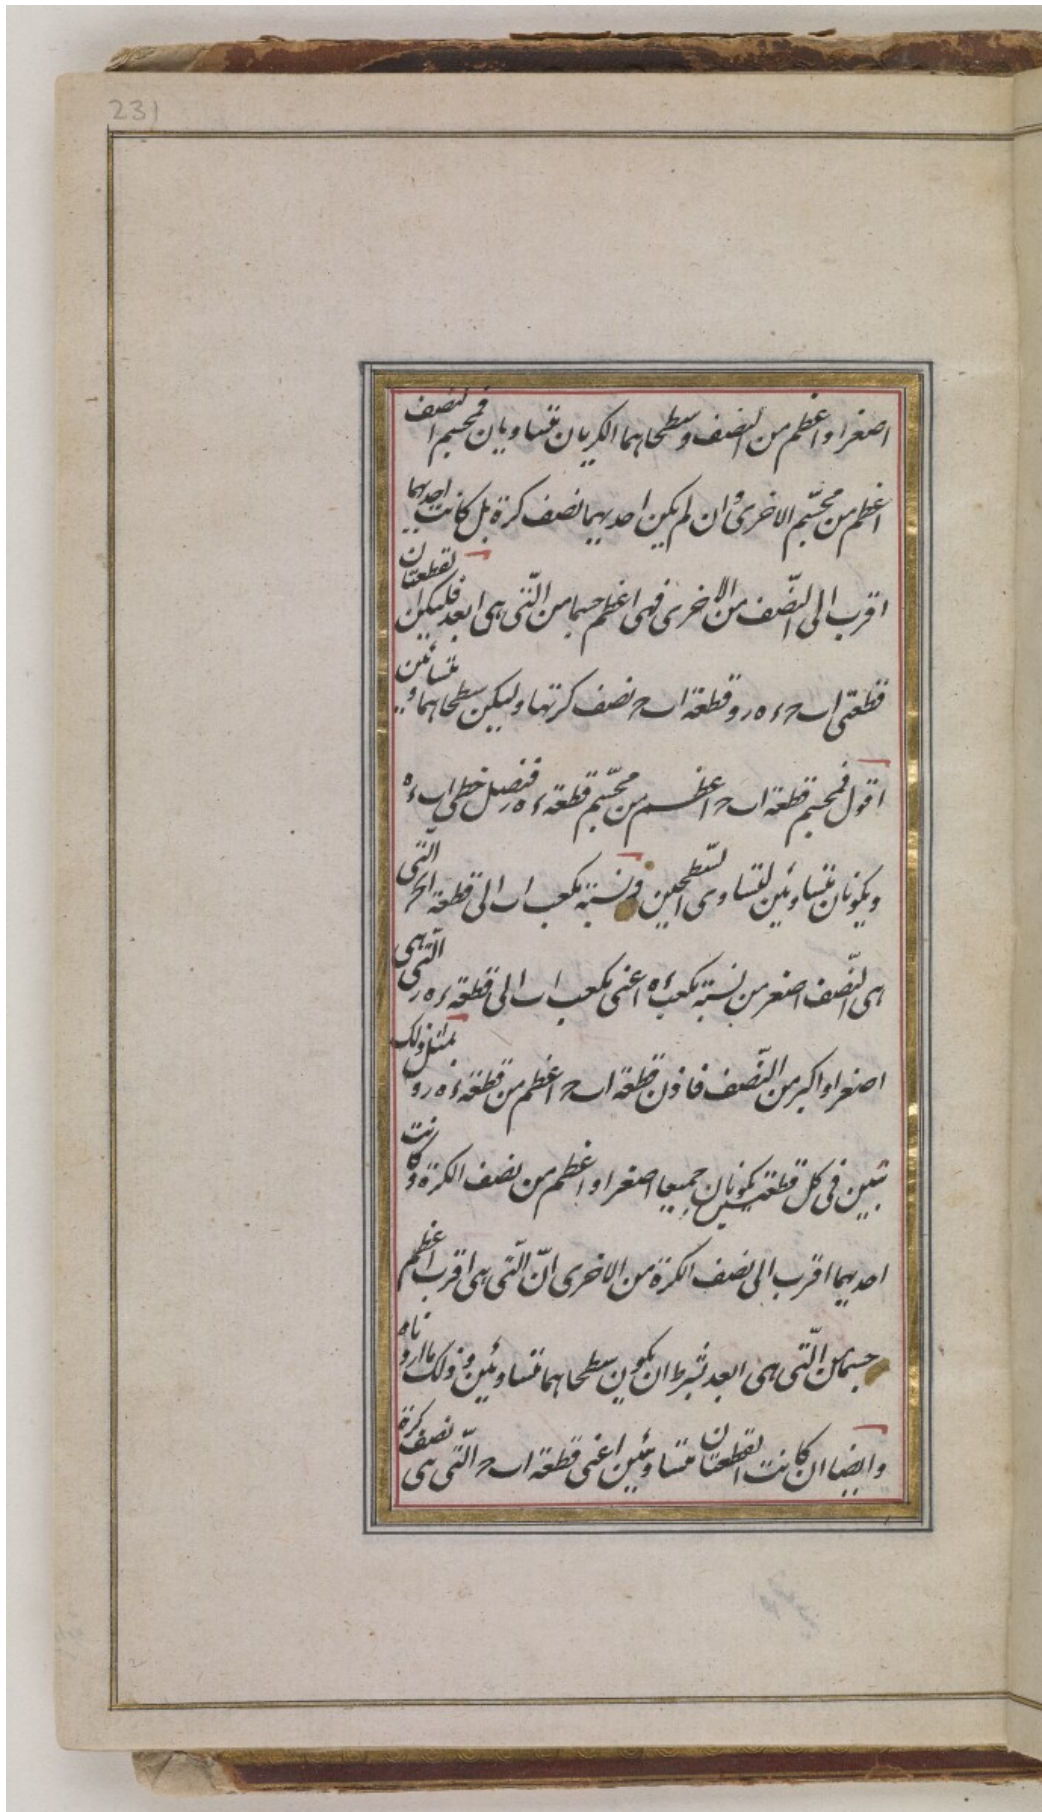 231
اصغر او اعظم من النصف وسطحاهما الكريان متساويان فمجسم النصف
اعظم من مجسّم الاخرى وان لم يكن احديهما نصف كرة بل كانت احديهما
اقرب الى النّصف من الاخرى فهى اعظم جسما من الّتى هى ابعد فليكن القطعتان
قطعتى اب‍ح ءه‍ر وقطعة اب‍ح نصف كرتها وليكن سطحاهما متساويين
اقول فمجسم قطعة اب‍ح اعظم من مجسّم قطعة ءه‍ر فنصل خطى اب ءه
ويكونان متساويين لتساوى السّطحين ونسبة مكعب اب الى قطعة اب‍ح الّتى
هى النّصف اصغر من نسبة مكعب ءه اعنى مكعب اب الى قطعة ءه‍ر الّتى هى
اصغر او اكبر من النّصف فاذن قطعة اب‍ح اعظم من قطعة ءه‍ر وبمثل ذلك
تبين فى كل قطعتين يكونان جميعا اصغر او اعظم من نصف الكرة وكانت
احديهما اقرب الى نصف الكرة من الاخرى انّ الّتى هى اقرب اعظم
جسما من الّتى هى ابعد بشرط ان يكون سطحاهما متساويين وذلك ما اردناه
وايضا ان كانت القطعتان متساويتين اعنى قطعة اب‍ح الّتى هى نصف كرة